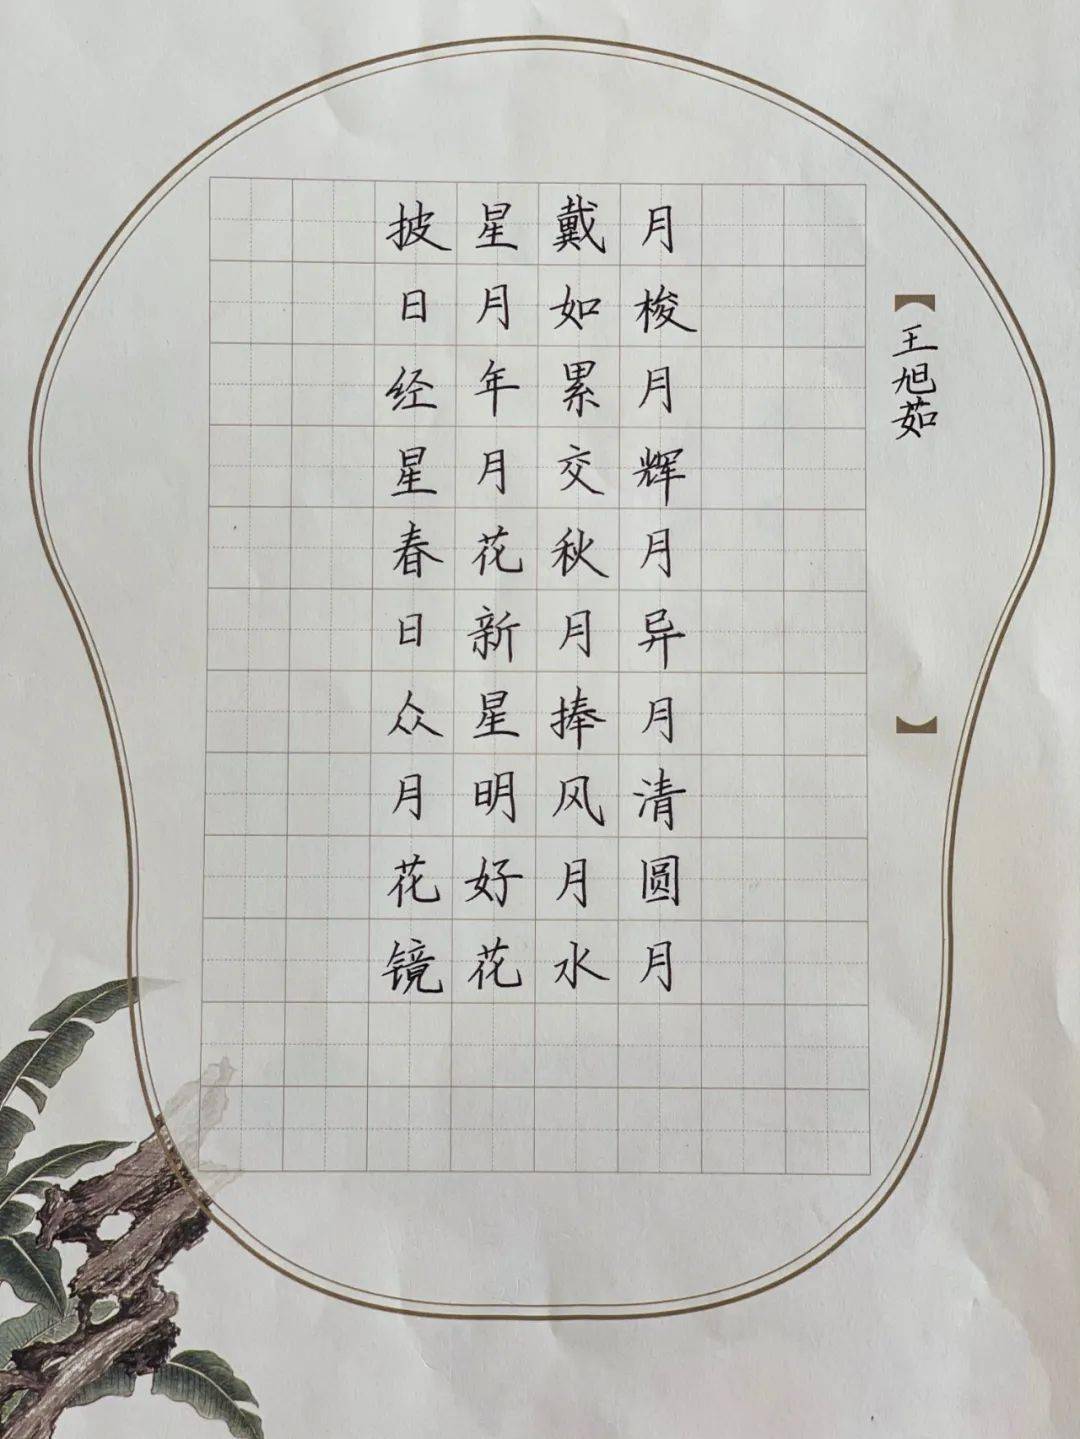 披星戴月
日月如梭
经年累月
星月交辉
春花秋月
日新月异
众星捧月
月明风清
花好月圆
镜花水月
【王旭茹】